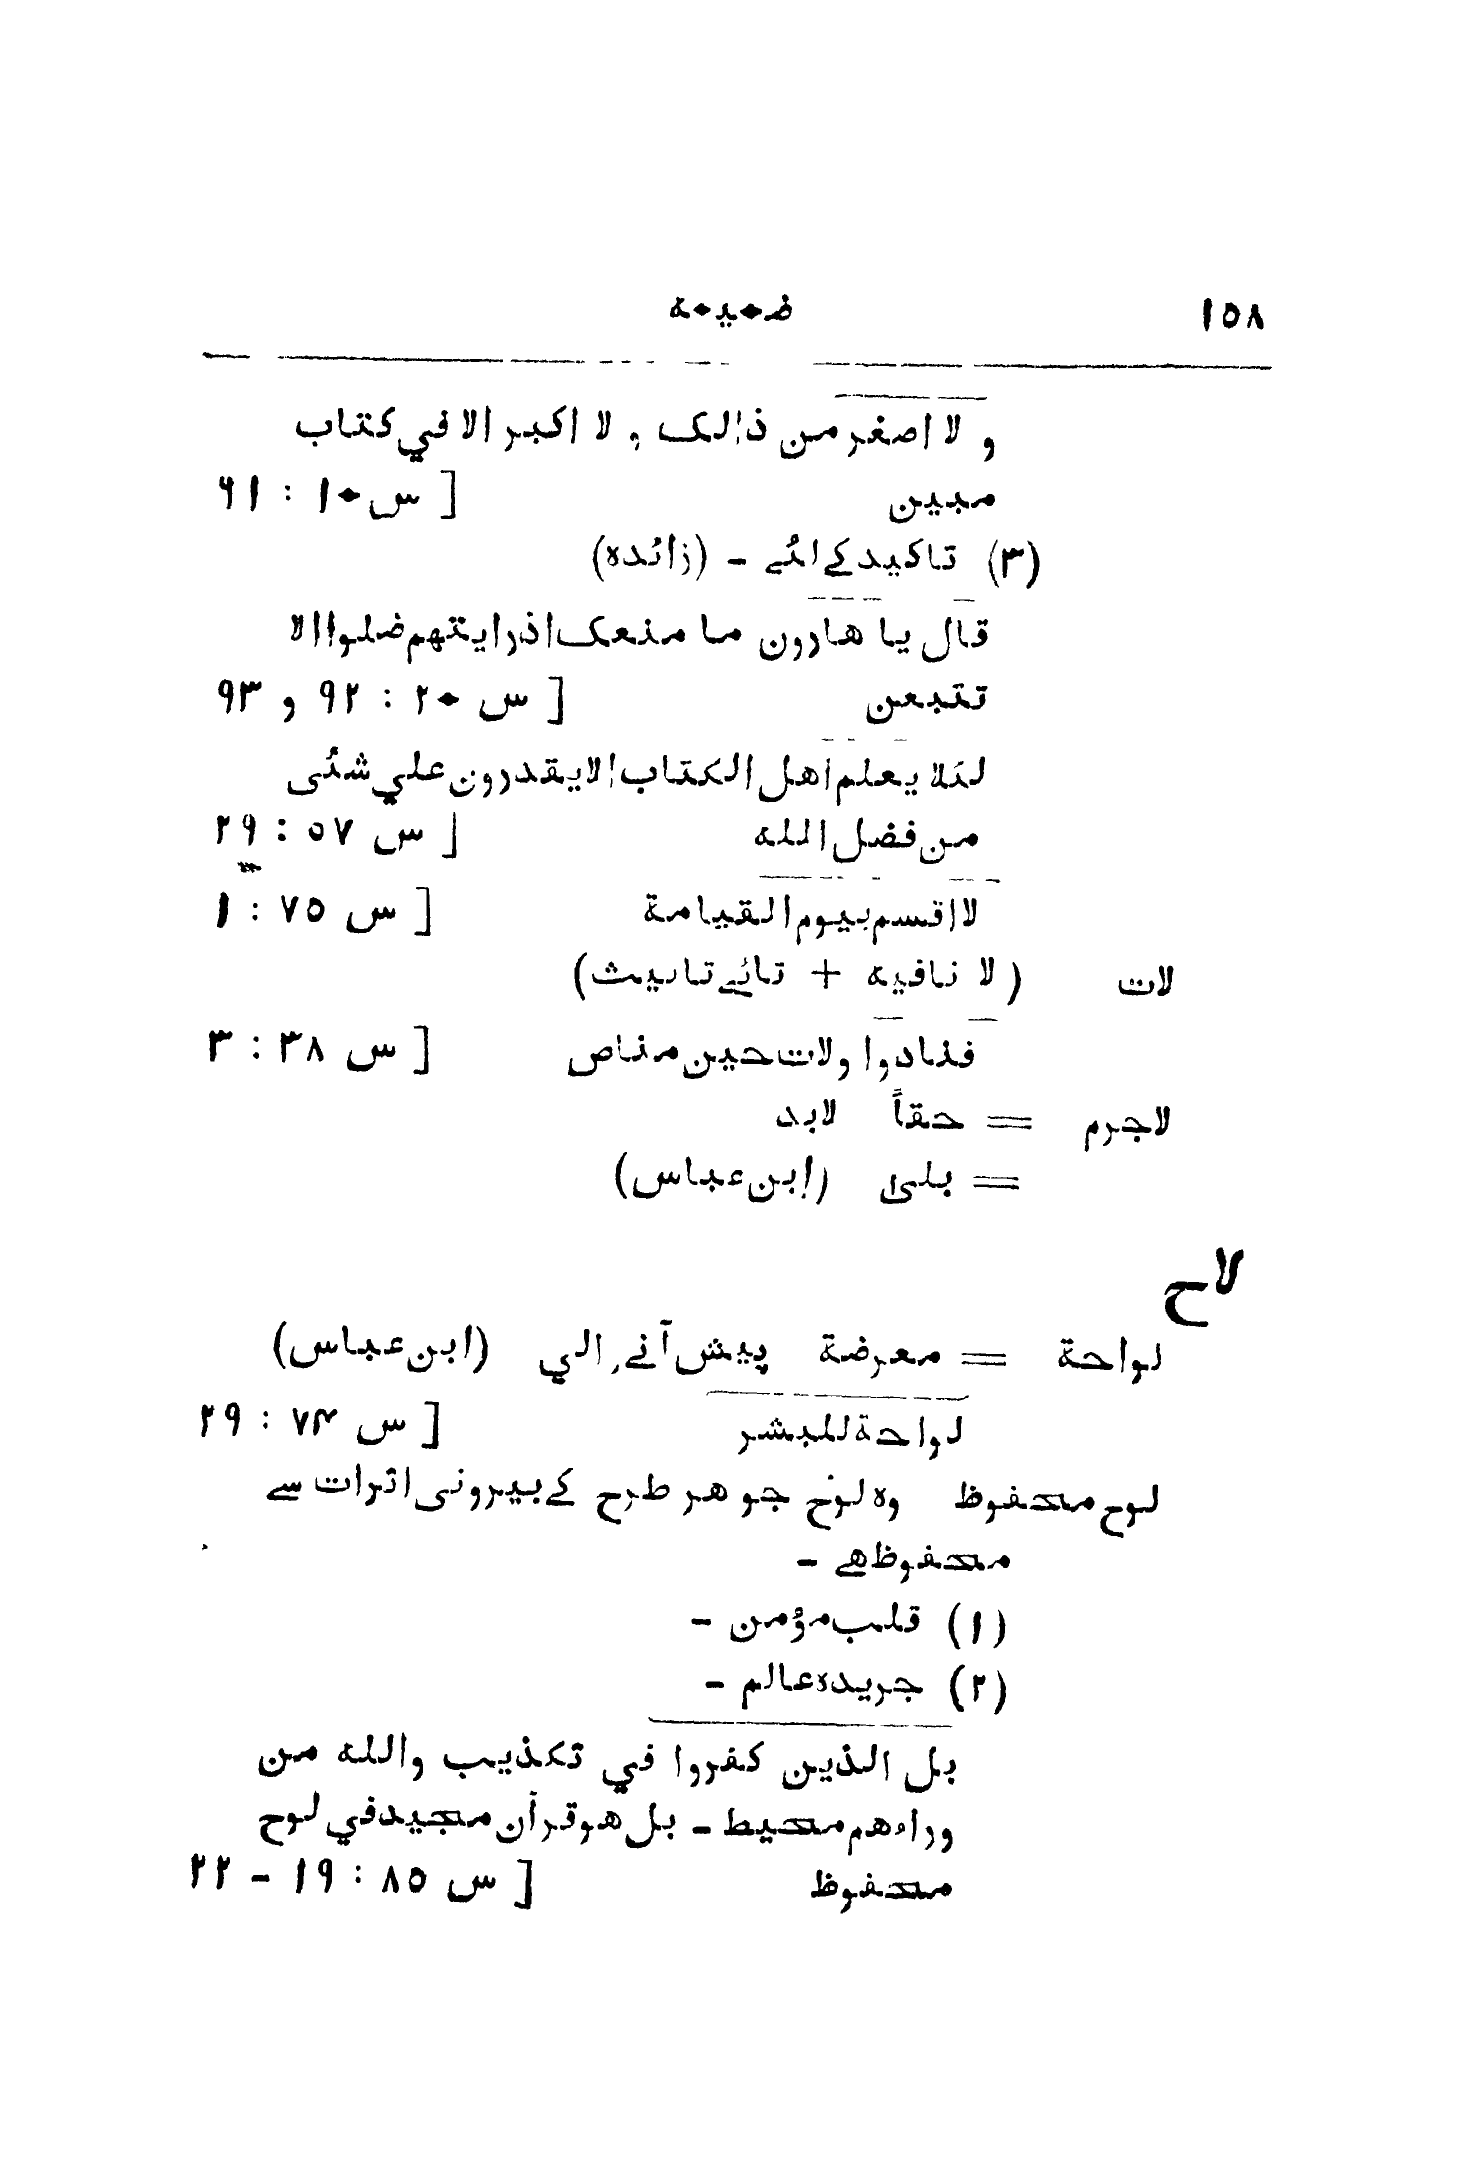 ۱۵۸ ضمیمہ
و لا اصغر من ذالک و لا اکبر الا في کتاب
مبین [ س ۱۰ : ۶۱
(۳) تاکید کے لئے - (زائدہ)
قال یا هارون ما منعک اذ رایتهم ضلوا الا
تتبعن [ س ۲۰ : ۹۲ و ۹۳
لئلا یعلم اهل الکتاب الا یقدرون علي شئی
من فضل الله [ س ۵۷ : ۲۹
لا اقسم بیوم القیامة [ س ۷۵ : ۱
لات (لا نافیہ + تائے تانیث)
فنادوا ولات حین مناص [ س ۳۸ : ۳
لاجرم = حقاً لابد
= بلیٰ (ابن عباس)
لاح
لواحة = معرضة پیش آنے والي (ابن عباس)
لواحة للبشر [ س ۷۴ : ۲۹
لوح محفوظ وہ لوح جو هر طرح کے بیرونی اثرات سے
محفوظ هے -
(۱) قلب مؤمن -
(۲) جریدہ عالم -
بل الذین کفروا في تکذیب والله من
وراءهم محیط - بل هو قرآن مجید في لوح
محفوظ [ س ۸۵ : ۱۹ - ۲۲